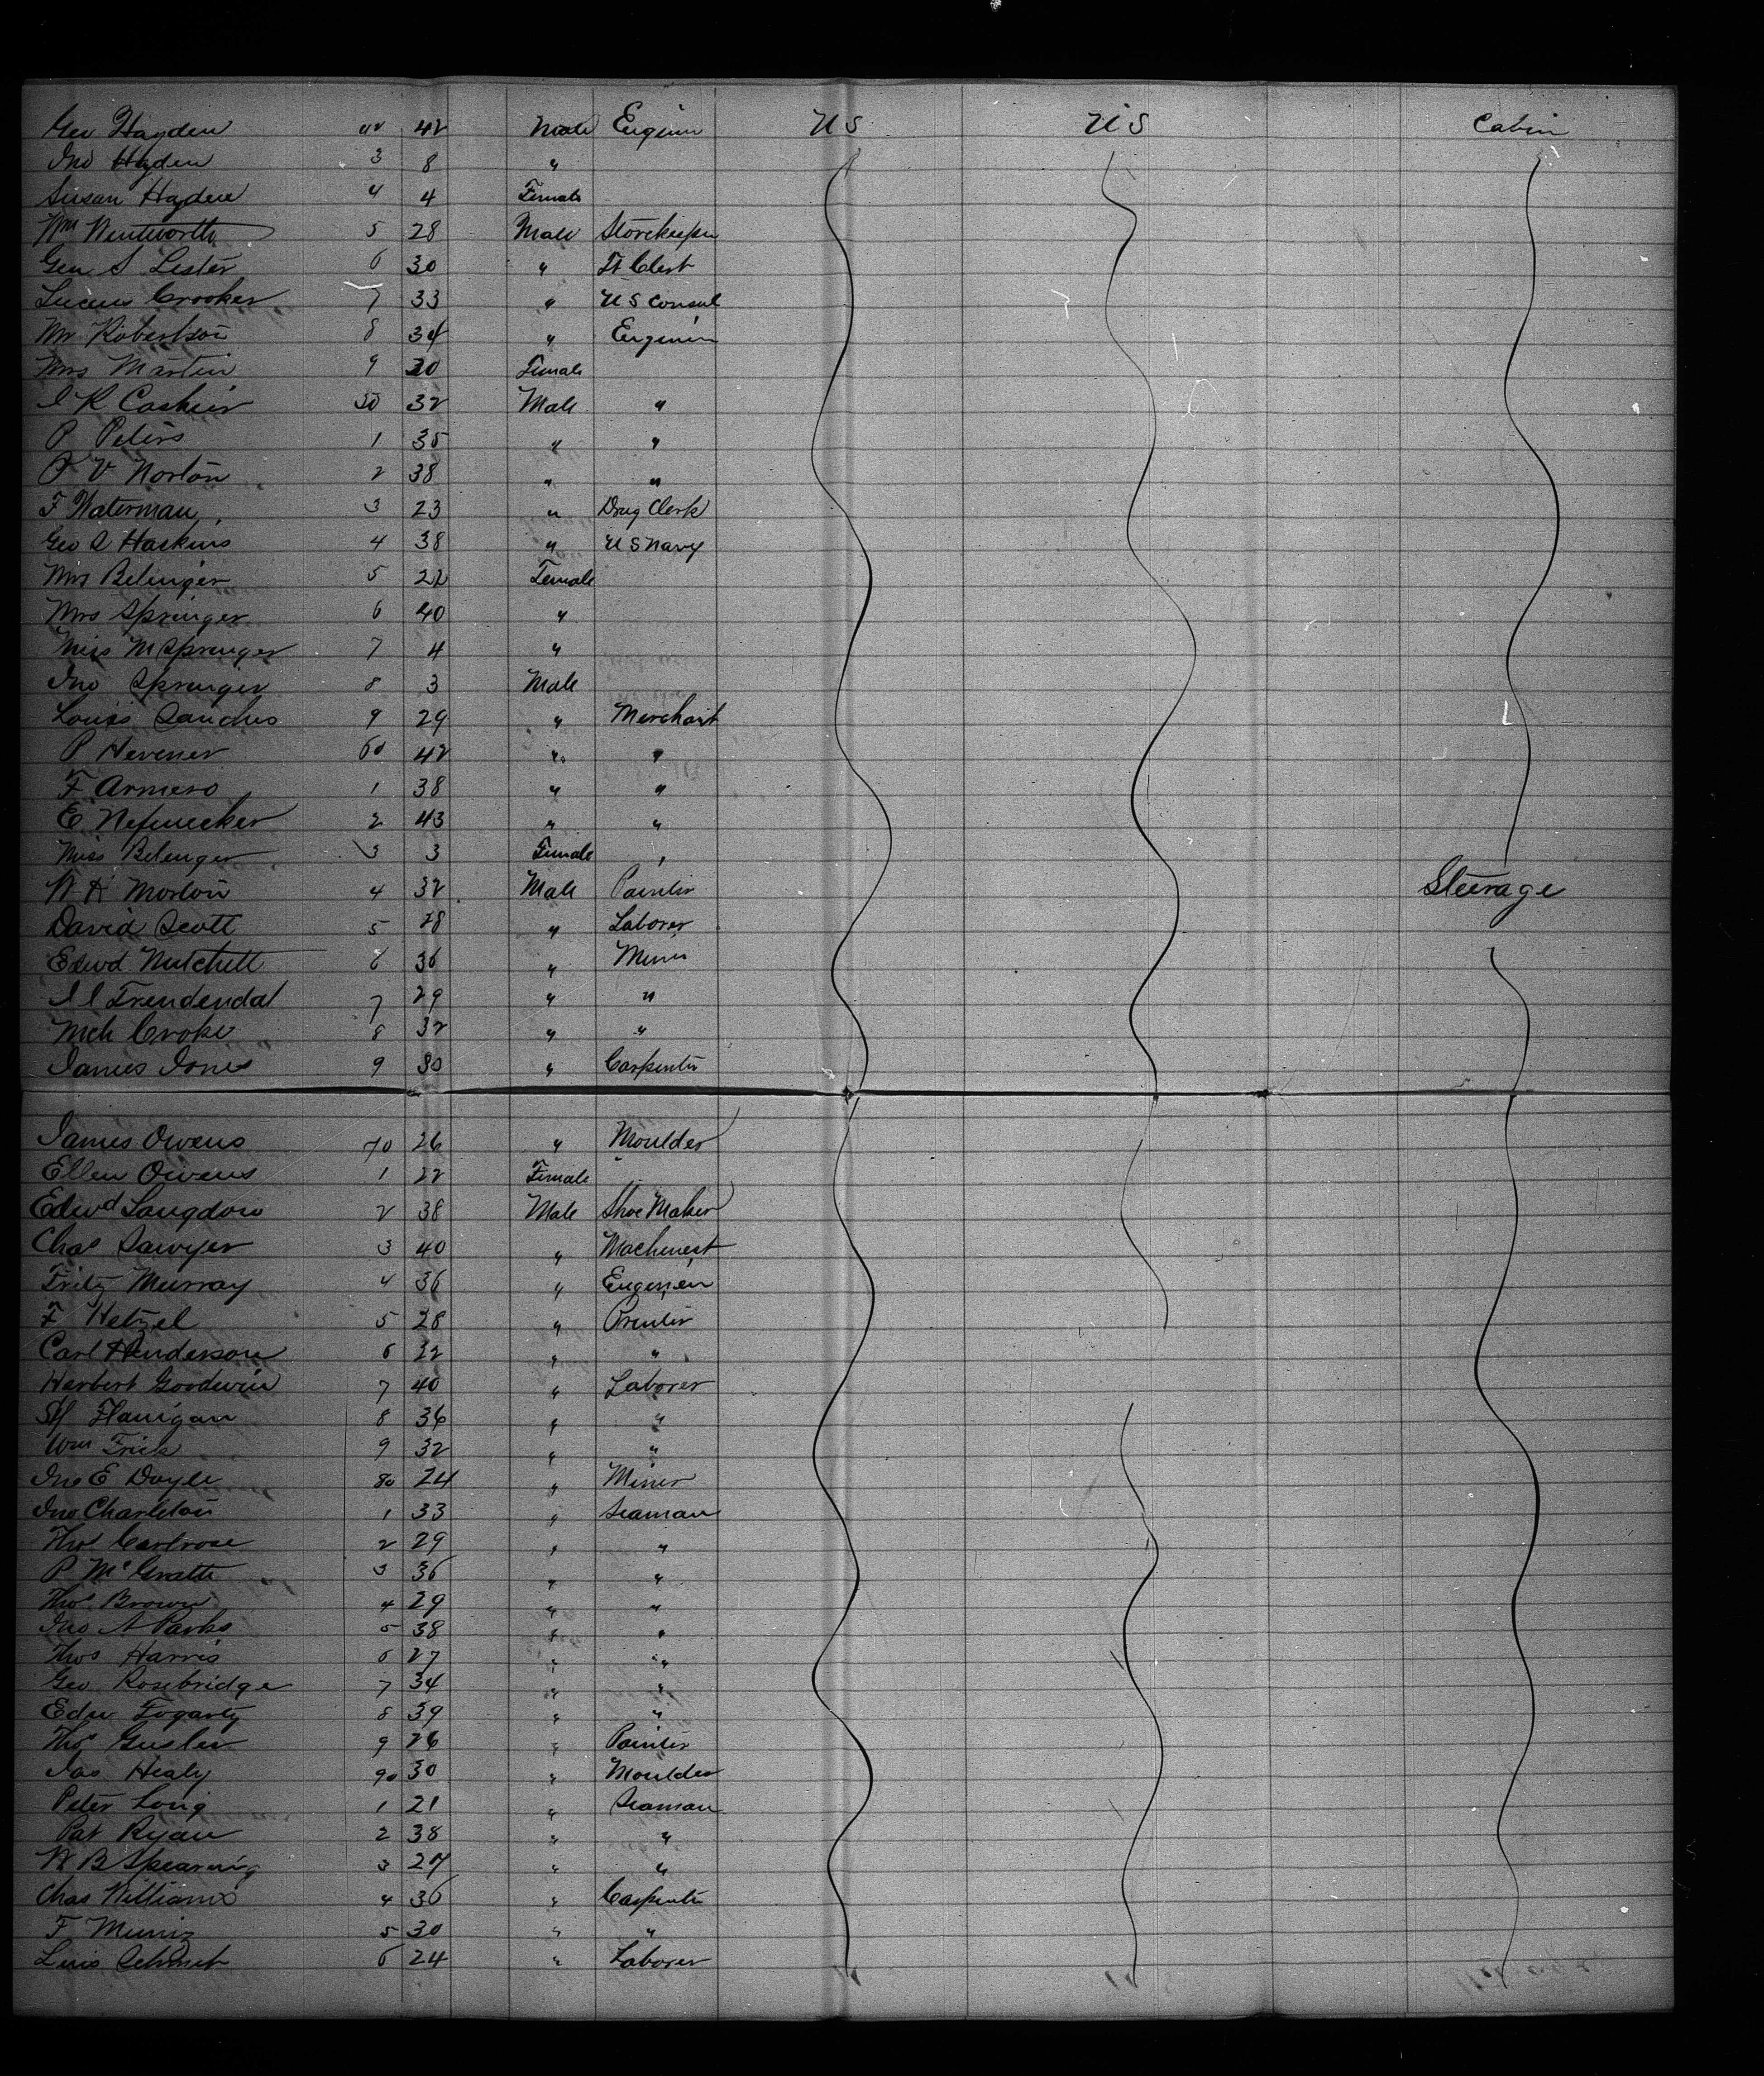 Geo Hayden 42 42 Male Engineer U S U S Cabin
Jno Hayden 3 8 "
Susan Hayden 4 4 Female
Wm Wentworth 5 28 Male Storekeeper
Geo S Lester 6 30 " Clerk
Lucius Crooker 7 33 " U S Consul
Mr Robertson 8 34 " Engineer
Mrs Martin 9 30 Female
50 32 Male "
P Peters 1 35 " "
P V Norton 2 38 " "
F Waterman 3 23 " Drug Clerk
Geo S Haskins 4 38 " U S Navy
Mrs Belenger 5 22 Female
Mrs Springer 6 40 "
Miss M Springer 7 4 "
Jno Springer 8 3 Male
Louis Sanches 9 29 " Merchant
P Hevener 60 42 " "
F Armero 1 38 " "
E 2 43 " "
Miss Belenger 3 3 Female "
W H Morton 4 32 Male Painter Steerage
David Scott 5 28 " Laborer
Edwd Mitchell 6 36 " Miner
Trendendal 7 29 " "
Mch Croke 8 32 " "
James Jones 9 30 " Carpenter
James Owens 70 26 " Moulder
Ellen Owens 1 22 Female
Edwd Langdon 2 38 Male Shoe Maker
Chas Sawyer 3 40 " Machinest
Fritz Murray 4 36 " Engineer
F Hetzel 5 28 " Printer
Carl Henderson 6 32 " "
Herbert Goodwin 7 40 " Laborer
Flanigan 8 36 " "
Wm Frick 9 32 " "
Jno E Doyle 80 24 " Miner
Jno Charleton 1 33 " Seaman
Thos 2 29 " "
P McGrath 3 36 " "
Thos Brown 4 29 " "
Jno A Parks 5 38 " "
Thos Harris 6 27 " "
Geo Rosebridge 7 34 " "
Edw Fogarty 8 39 " "
Thos 9 26 " Painter
Jas Healy 90 30 " Moulder
Peter Long 1 21 " Seaman
Pat Ryan 2 38 " "
W B Spearing 3 27 " "
Chas Williams 4 36 " Carpenter
F Muniz 5 30 " "
Luis Schmit 6 24 " Laborer